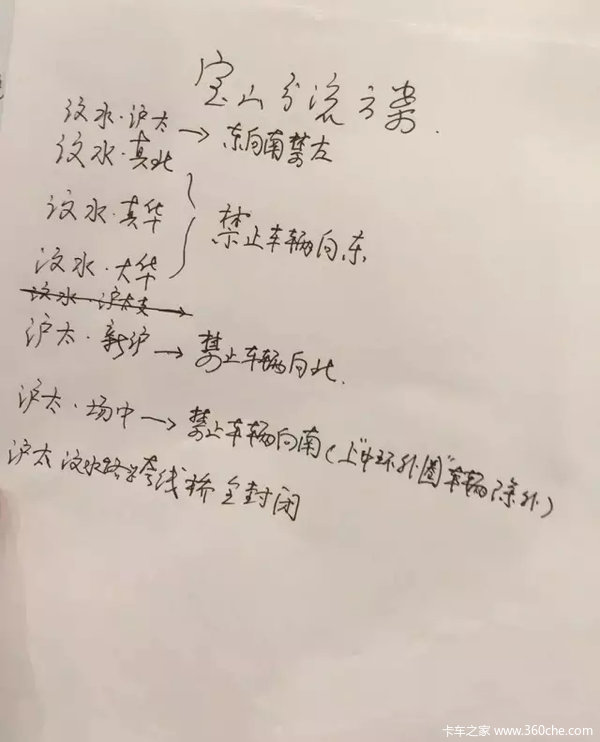 宝山分流方案.
汶水·沪太 → 东向南禁左
汶水·真北
汶水·真华
汶水·大华
禁止车辆向东
汶水 沪太支 →
沪太·新沪 → 禁止车辆向北.
沪太·场中 → 禁止车辆向南(上"中环外圈"车辆除外)
沪太 汶水路跨线桥全封闭
卡车之家 www.360che.com